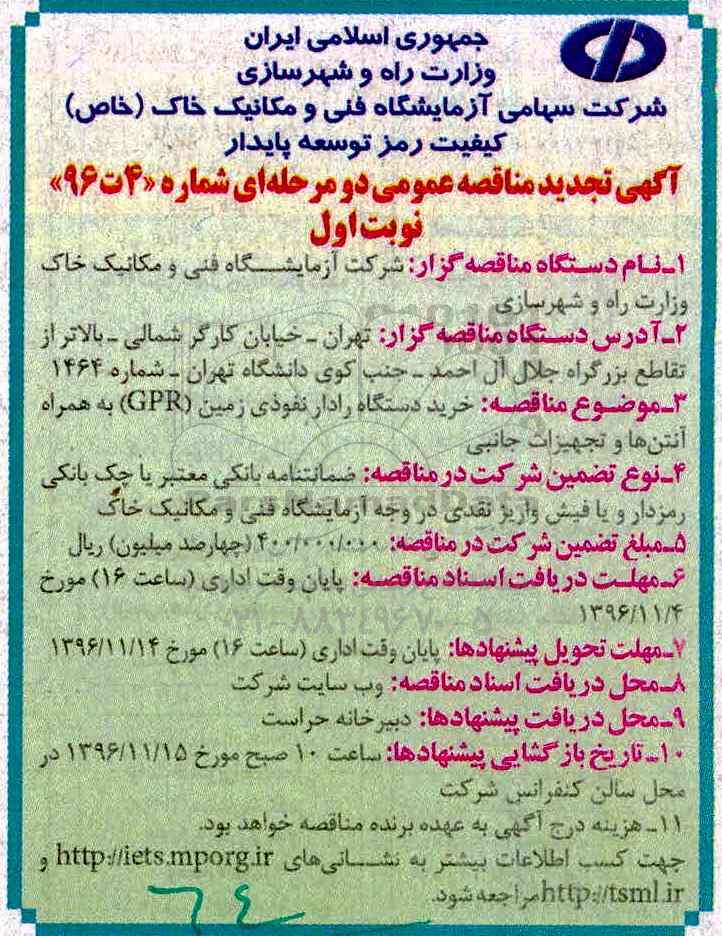 جمهوری اسلامی ایران
وزارت راه و شهرسازی
شرکت سهامی آزمایشگاه فنی و مکانیک خاک (خاص)
کیفیت رمز توسعه پایدار
آگهی تجدید مناقصه عمومی دو مرحله‌ای شماره «۴ت۹۶»
نوبت اول
۱ـ نـام دستـگاه مناقصه گزار: شرکت آزمایشـــگاه فنی و مکانیک خاک
وزارت راه و شهرسازی
۲ـ آدرس دستـگاه مناقصه گزار: تهران ـ خیابان کارگر شمالی ـ بالاتر از
تقاطع بزرگراه جلال آل احمد ـ جنب کوی دانشگاه تهران ـ شماره ۱۴۶۴
۳ـ موضـوع مناقصـه: خرید دستگاه رادار نفوذی زمین (GPR) به همراه
آنتن‌ها و تجهیزات جانبی
۴ـ نوع تضمین شرکت در مناقصه: ضمانتنامه بانکی معتبر یا چک بانکی
رمزدار و یا فیش واریز نقدی در وجه آزمایشگاه فنی و مکانیک خاک
۵ـ مبلغ تضمین شرکت در مناقصه: ۴۰۰/۰۰۰/۰۰۰ (چهارصد میلیون) ریال
۶ـ مهلـت دریافت اسـناد مناقصـه: پایان وقت اداری (ساعت ۱۶) مورخ
۱۳۹۶/۱۱/۴
۷ـ مهلت تحویل پیشنهادها: پایان وقت اداری (ساعت ۱۶) مورخ ۱۳۹۶/۱۱/۱۴
۸ـ محل دریافت اسناد مناقصه: وب سایت شرکت
۹ـ محل دریافت پیشنهادها: دبیرخانه حراست
۱۰ـ تاریخ باز گشایی پیشنهادها: ساعت ۱۰ صبح مورخ ۱۳۹۶/۱۱/۱۵ در
محل سالن کنفرانس شرکت
۱۱ـ هزینه درج آگهی به عهده برنده مناقصه خواهد بود.
جهت کسب اطلاعات بیشتر به نشـــانی‌های http://iets.mporg.ir و
http://tsml.ir مراجعه شود.
۶۴